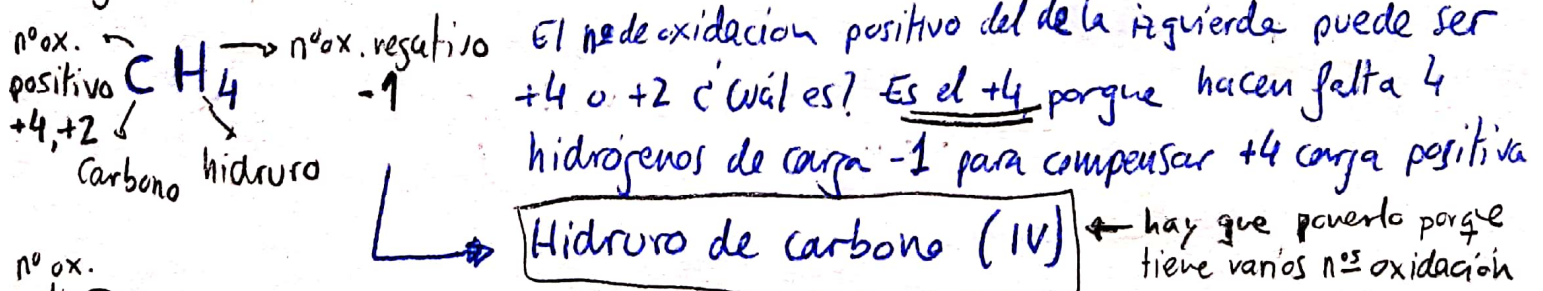 nº ox.
positivo
+4, +2
C H4
nºox. negativo
-1
Carbono
hidruro
El nº de oxidación positivo del de la izquierda puede ser
+4 o +2 ¿Cuál es? Es el +4 porque hacen falta 4
hidrógenos de carga -1 para compensar +4 carga positiva
Hidruro de carbono (IV)
hay que ponerlo porque
tiene varios nºs oxidación
nº ox.